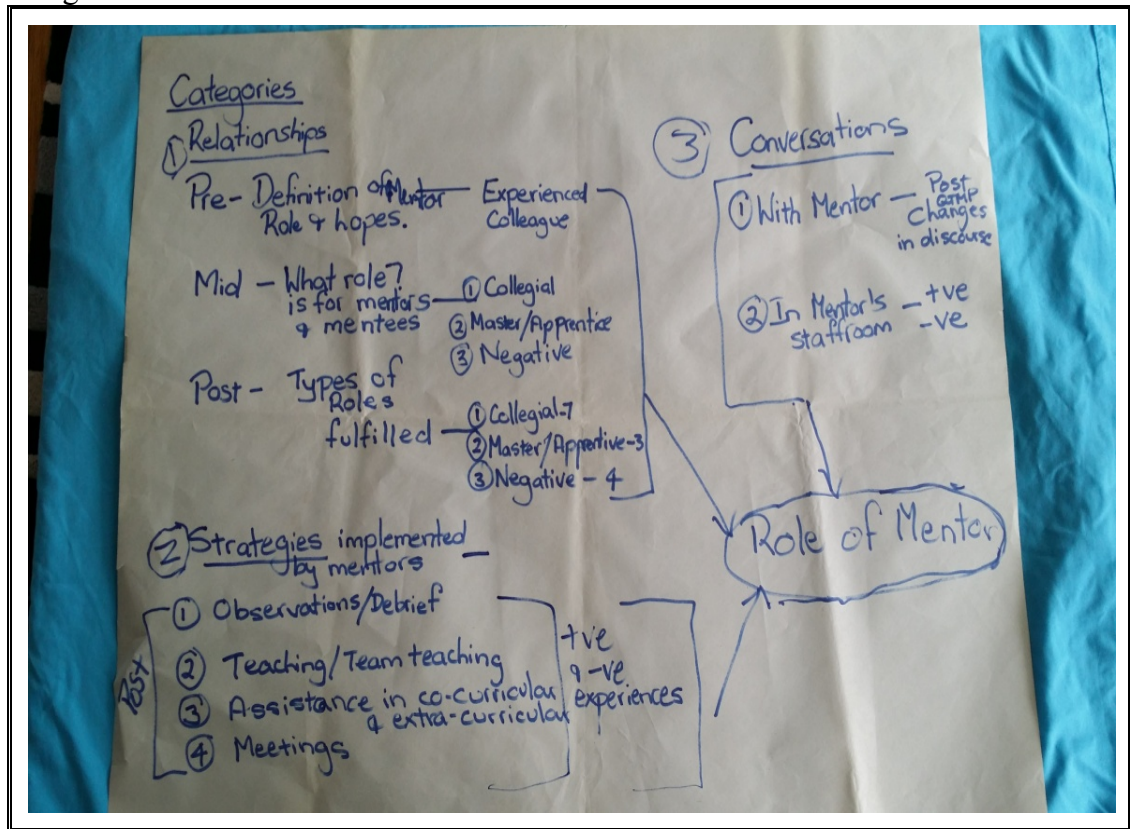 Categories
① Relationships
Pre- Definition of Mentor — Experienced
Role & hopes. Colleague
Mid - What role?
is for mentors — ① Collegial
& mentees ② Master/Apprentice
③ Negative
Post - Types of
Roles
fulfilled — ① Collegial-7
② Master/Apprentive-3
③ Negative - 4
② Strategies implemented
by mentors
Post
① Observations/Debrief
② Teaching/Team teaching
③ Assistance in co-curricular
& extra-curricular
④ Meetings
+ve
& -ve
experiences
③ Conversations
① With Mentor - Post
GTMP
Changes
in discourse
② In Mentor's - +ve
staffroom -ve
Role of Mentor